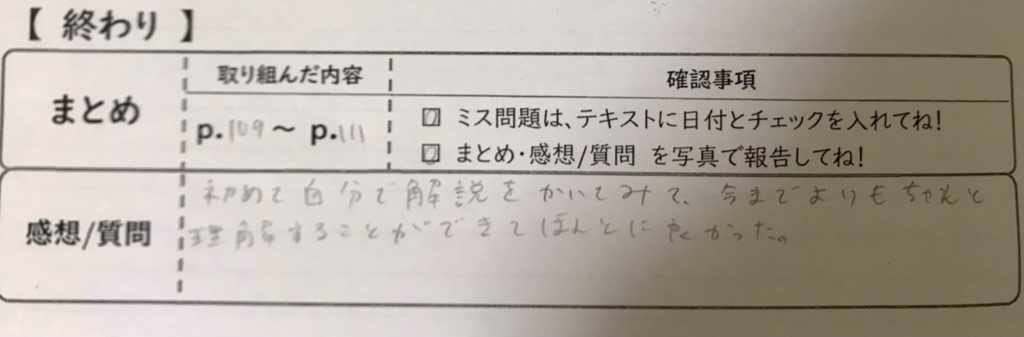 【 終わり 】
取り組んだ内容 確認事項
まとめ p.109～ p.111
☐ ミス問題は、テキストに日付とチェックを入れてね!
☐ まとめ・感想/質問 を写真で報告してね!
感想/質問
初めて自分で解説をかいてみて、今までよりもちゃんと
理解することができてほんとに良かった。